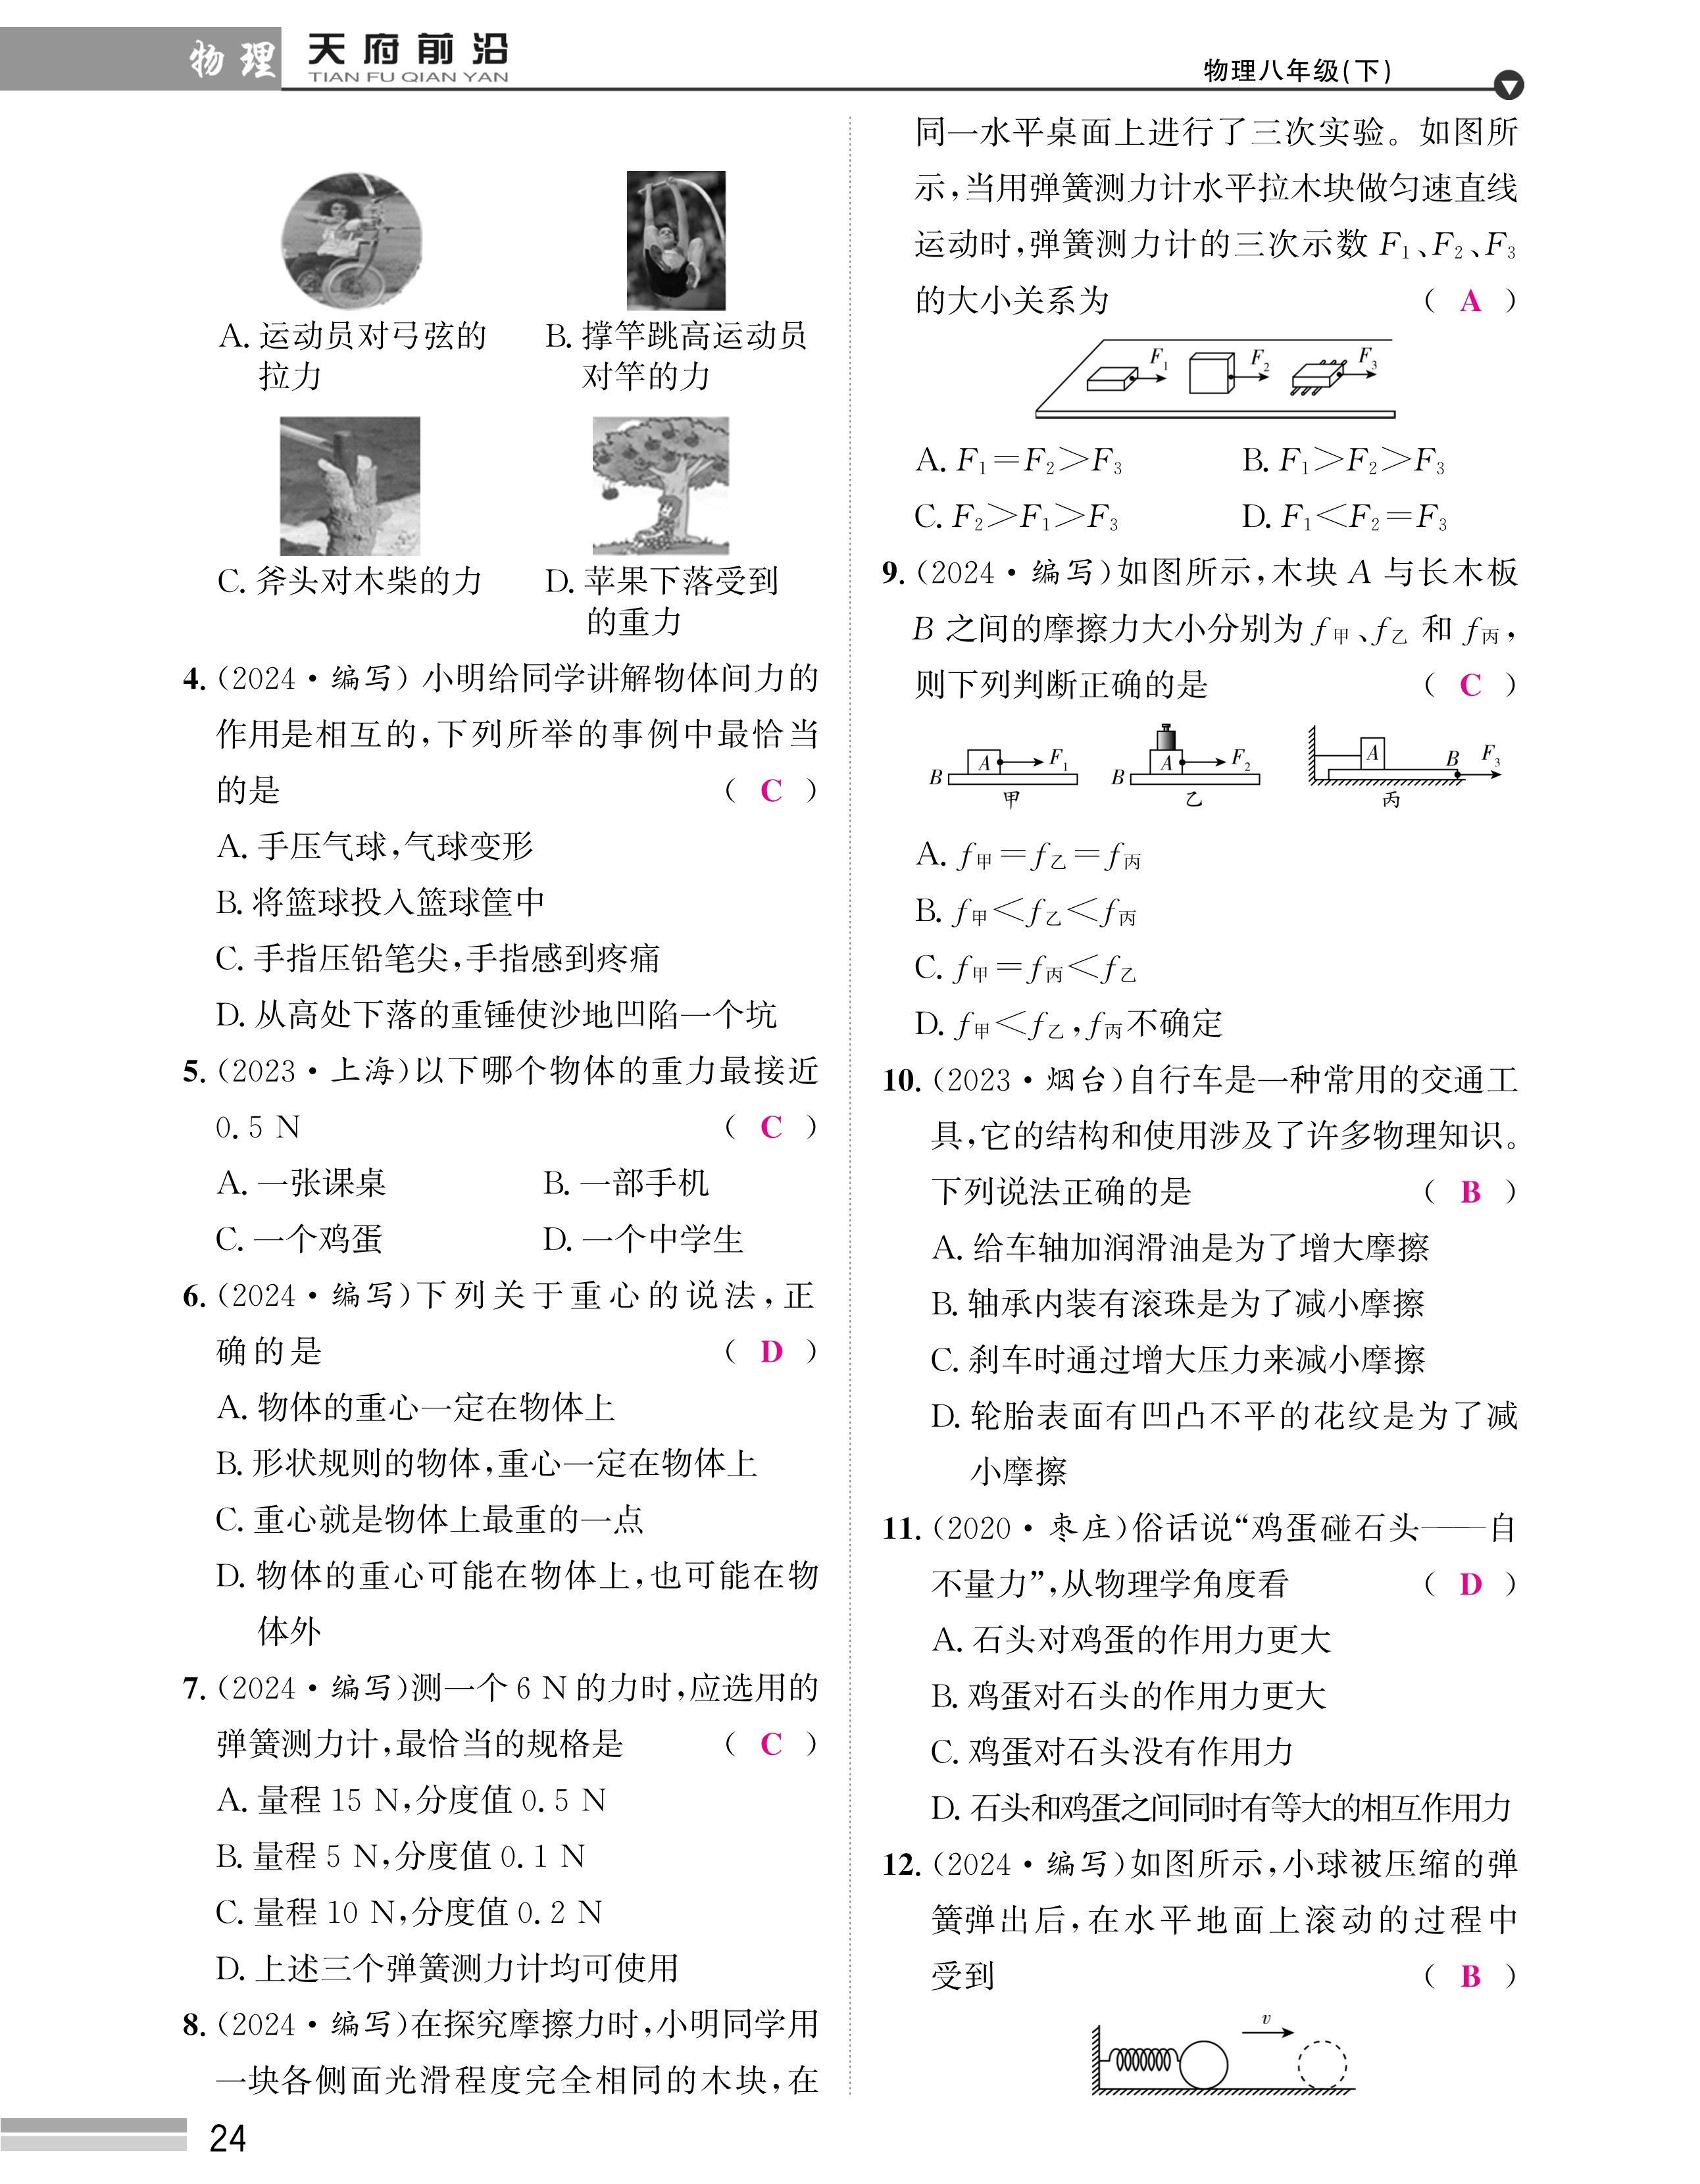 物理
天府前沿
TIAN FU QIAN YAN
物理八年级(下)
A. 运动员对弓弦的
拉力
B. 撑竿跳高运动员
对竿的力
C. 斧头对木柴的力
D. 苹果下落受到
的重力
4. (2024·编写) 小明给同学讲解物体间力的
作用是相互的,下列所举的事例中最恰当
的是 ( C )
A. 手压气球,气球变形
B. 将篮球投入篮球筐中
C. 手指压铅笔尖,手指感到疼痛
D. 从高处下落的重锤使沙地凹陷一个坑
5. (2023·上海)以下哪个物体的重力最接近
0.5 N ( C )
A. 一张课桌 B. 一部手机
C. 一个鸡蛋 D. 一个中学生
6. (2024·编写)下列关于重心的说法,正
确的是 ( D )
A. 物体的重心一定在物体上
B. 形状规则的物体,重心一定在物体上
C. 重心就是物体上最重的一点
D. 物体的重心可能在物体上,也可能在物
体外
7. (2024·编写)测一个 6 N 的力时,应选用的
弹簧测力计,最恰当的规格是 ( C )
A. 量程 15 N,分度值 0.5 N
B. 量程 5 N,分度值 0.1 N
C. 量程 10 N,分度值 0.2 N
D. 上述三个弹簧测力计均可使用
8. (2024·编写)在探究摩擦力时,小明同学用
一块各侧面光滑程度完全相同的木块,在
同一水平桌面上进行了三次实验。如图所
示,当用弹簧测力计水平拉木块做匀速直线
运动时,弹簧测力计的三次示数 F₁、F₂、F₃
的大小关系为 ( A )
F₁ F₂ F₃
A. F₁=F₂>F₃ B. F₁>F₂>F₃
C. F₂>F₁>F₃ D. F₁<F₂=F₃
9. (2024·编写)如图所示,木块 A 与长木板
B 之间的摩擦力大小分别为 f甲、f乙 和 f丙,
则下列判断正确的是 ( C )
A F₁ B 甲
A F₂ B 乙
A B F₃ 丙
A. f甲=f乙=f丙
B. f甲<f乙<f丙
C. f甲=f丙<f乙
D. f甲<f乙,f丙不确定
10. (2023·烟台)自行车是一种常用的交通工
具,它的结构和使用涉及了许多物理知识。
下列说法正确的是 ( B )
A. 给车轴加润滑油是为了增大摩擦
B. 轴承内装有滚珠是为了减小摩擦
C. 刹车时通过增大压力来减小摩擦
D. 轮胎表面有凹凸不平的花纹是为了减
小摩擦
11. (2020·枣庄)俗话说“鸡蛋碰石头——自
不量力”,从物理学角度看 ( D )
A. 石头对鸡蛋的作用力更大
B. 鸡蛋对石头的作用力更大
C. 鸡蛋对石头没有作用力
D. 石头和鸡蛋之间同时有等大的相互作用力
12. (2024·编写)如图所示,小球被压缩的弹
簧弹出后,在水平地面上滚动的过程中
受到 ( B )
v
24